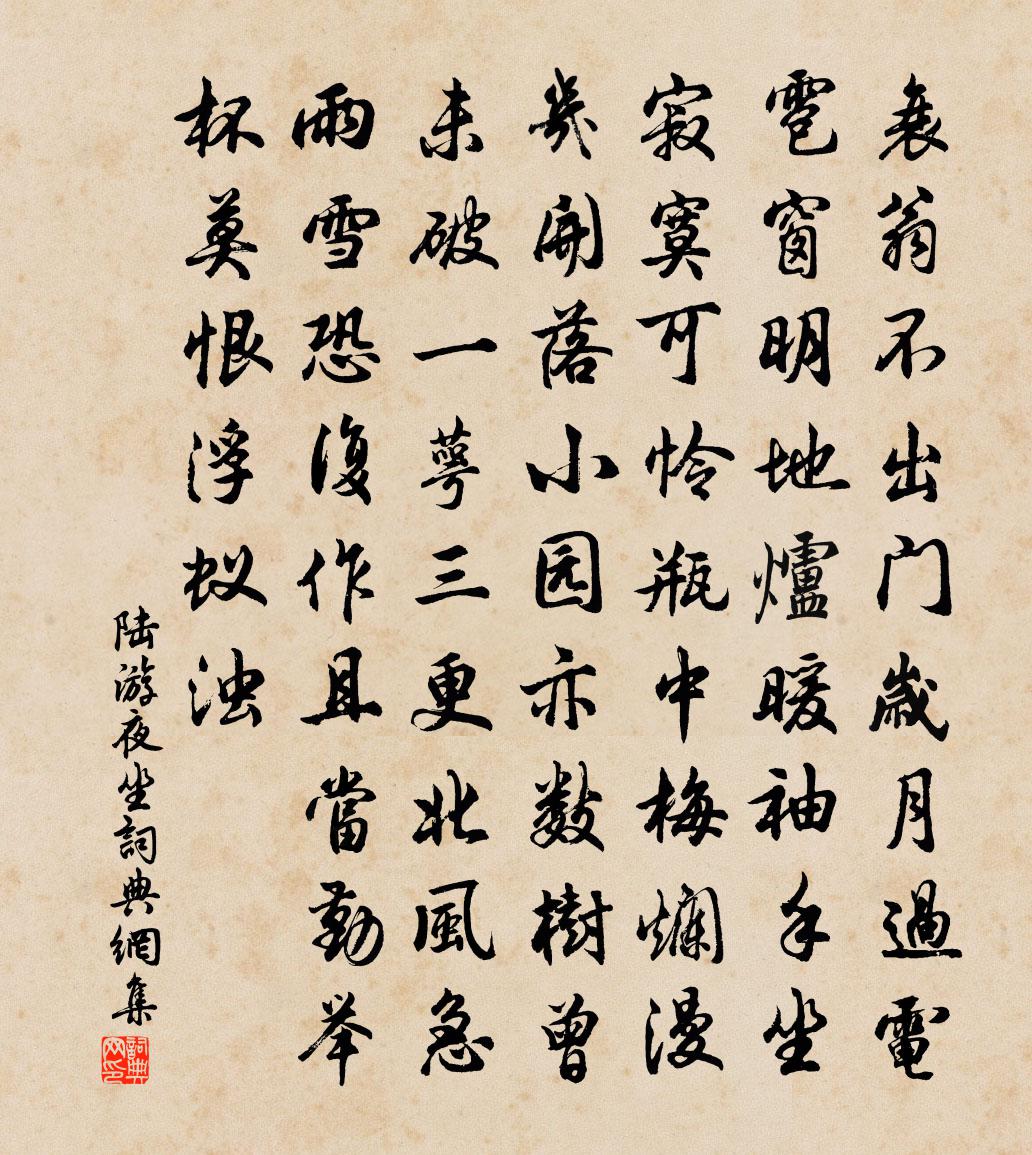 衰翁不出门歳月過電
雹窗明地爐暖袖手坐
寂寞可怜瓶中梅爛漫
幾開落小园亦数樹曾
未破一萼三更北風急
雨雪恐復作且當勤举
杯莫恨浮蚁浊
陆游夜坐詞典網集
詞典网印